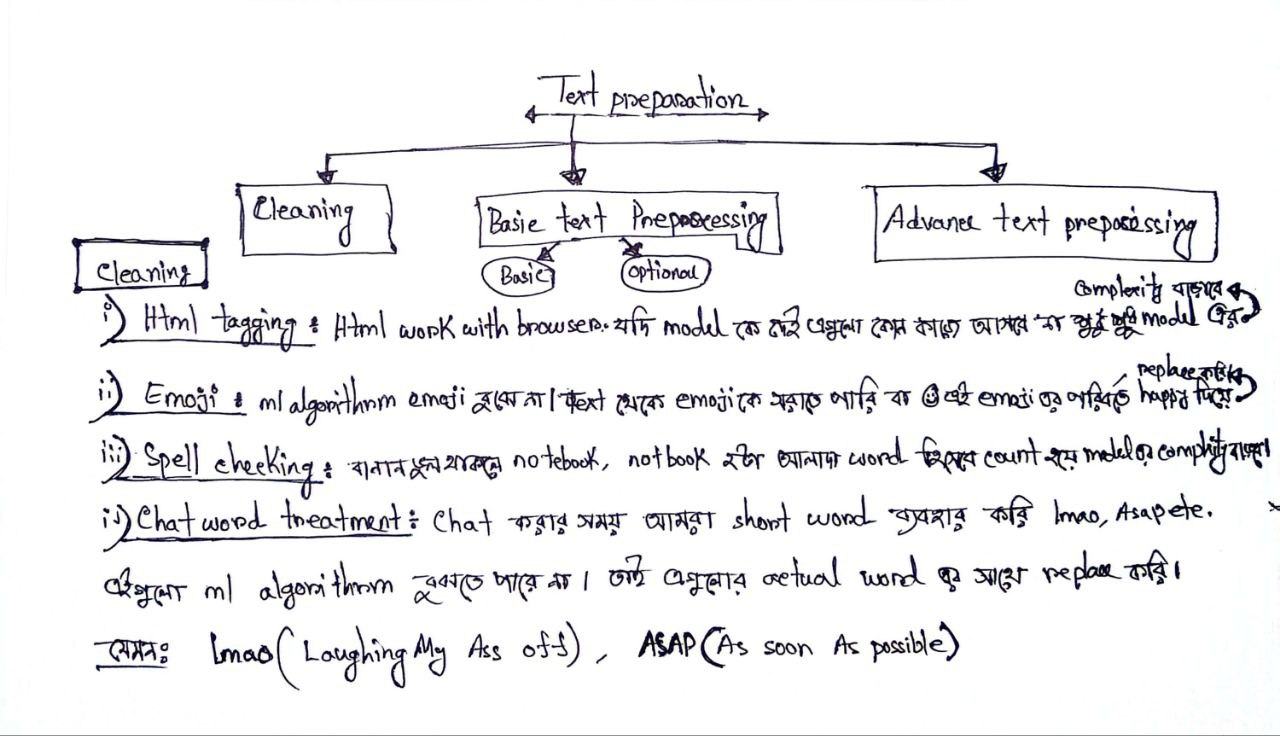 Text preparation
Cleaning
Basic text Preprocessing
Advance text preprocessing
Basic
Optional
Cleaning
i) Html tagging : Html work with browser. যদি model কে দেই এগুলো কোন কাজে আসবে না শুধু শুধু model এর complexity বাড়াবে
ii) Emoji : ml algorithm emoji বুঝে না। text থেকে emoji কে সরাতে পারি বা ☺ এই emoji এর পরিবর্তে happy দিয়ে replace করি
iii) Spell checking : বানান ভুল থাকলে notebook, notbook ২টা আলাদা word হিসাবে count হয়ে model এর complexity বাড়াবে।
iv) Chat word treatment : Chat করার সময় আমরা short word ব্যবহার করি lmao, Asap etc.
এইগুলো ml algorithm বুঝতে পারে না। তাই এগুলোর actual word এর সাথে replace করি।
যেমনঃ lmao (Laughing My Ass off), ASAP (As soon As possible)